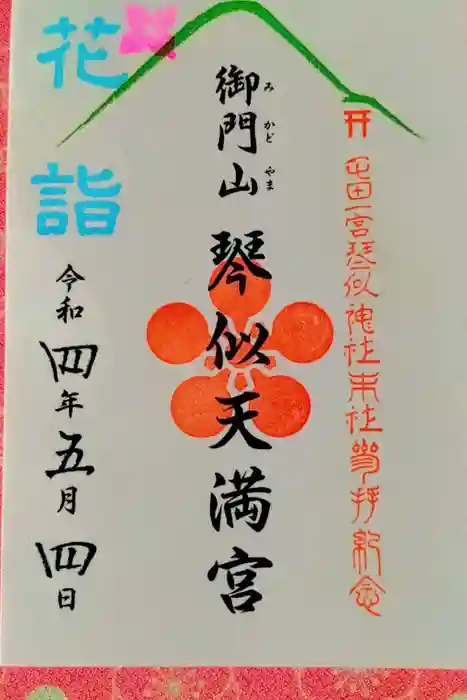 屯田一宮琴似神社末社参拝紀念
御門山 琴似天満宮
みかどやま
花詣
令和四年五月四日